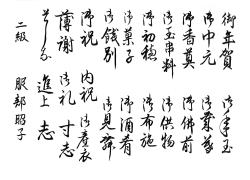 御年賀 御年玉
御中元 御霊前
御香奠 御佛前
御玉串料 御供物
御初穂 御布施
御菓子 御酒肴
御餞別 御見舞
御祝 内祝 御産衣
薄謝 御礼 寸志
進上 志
二級 服部昭子